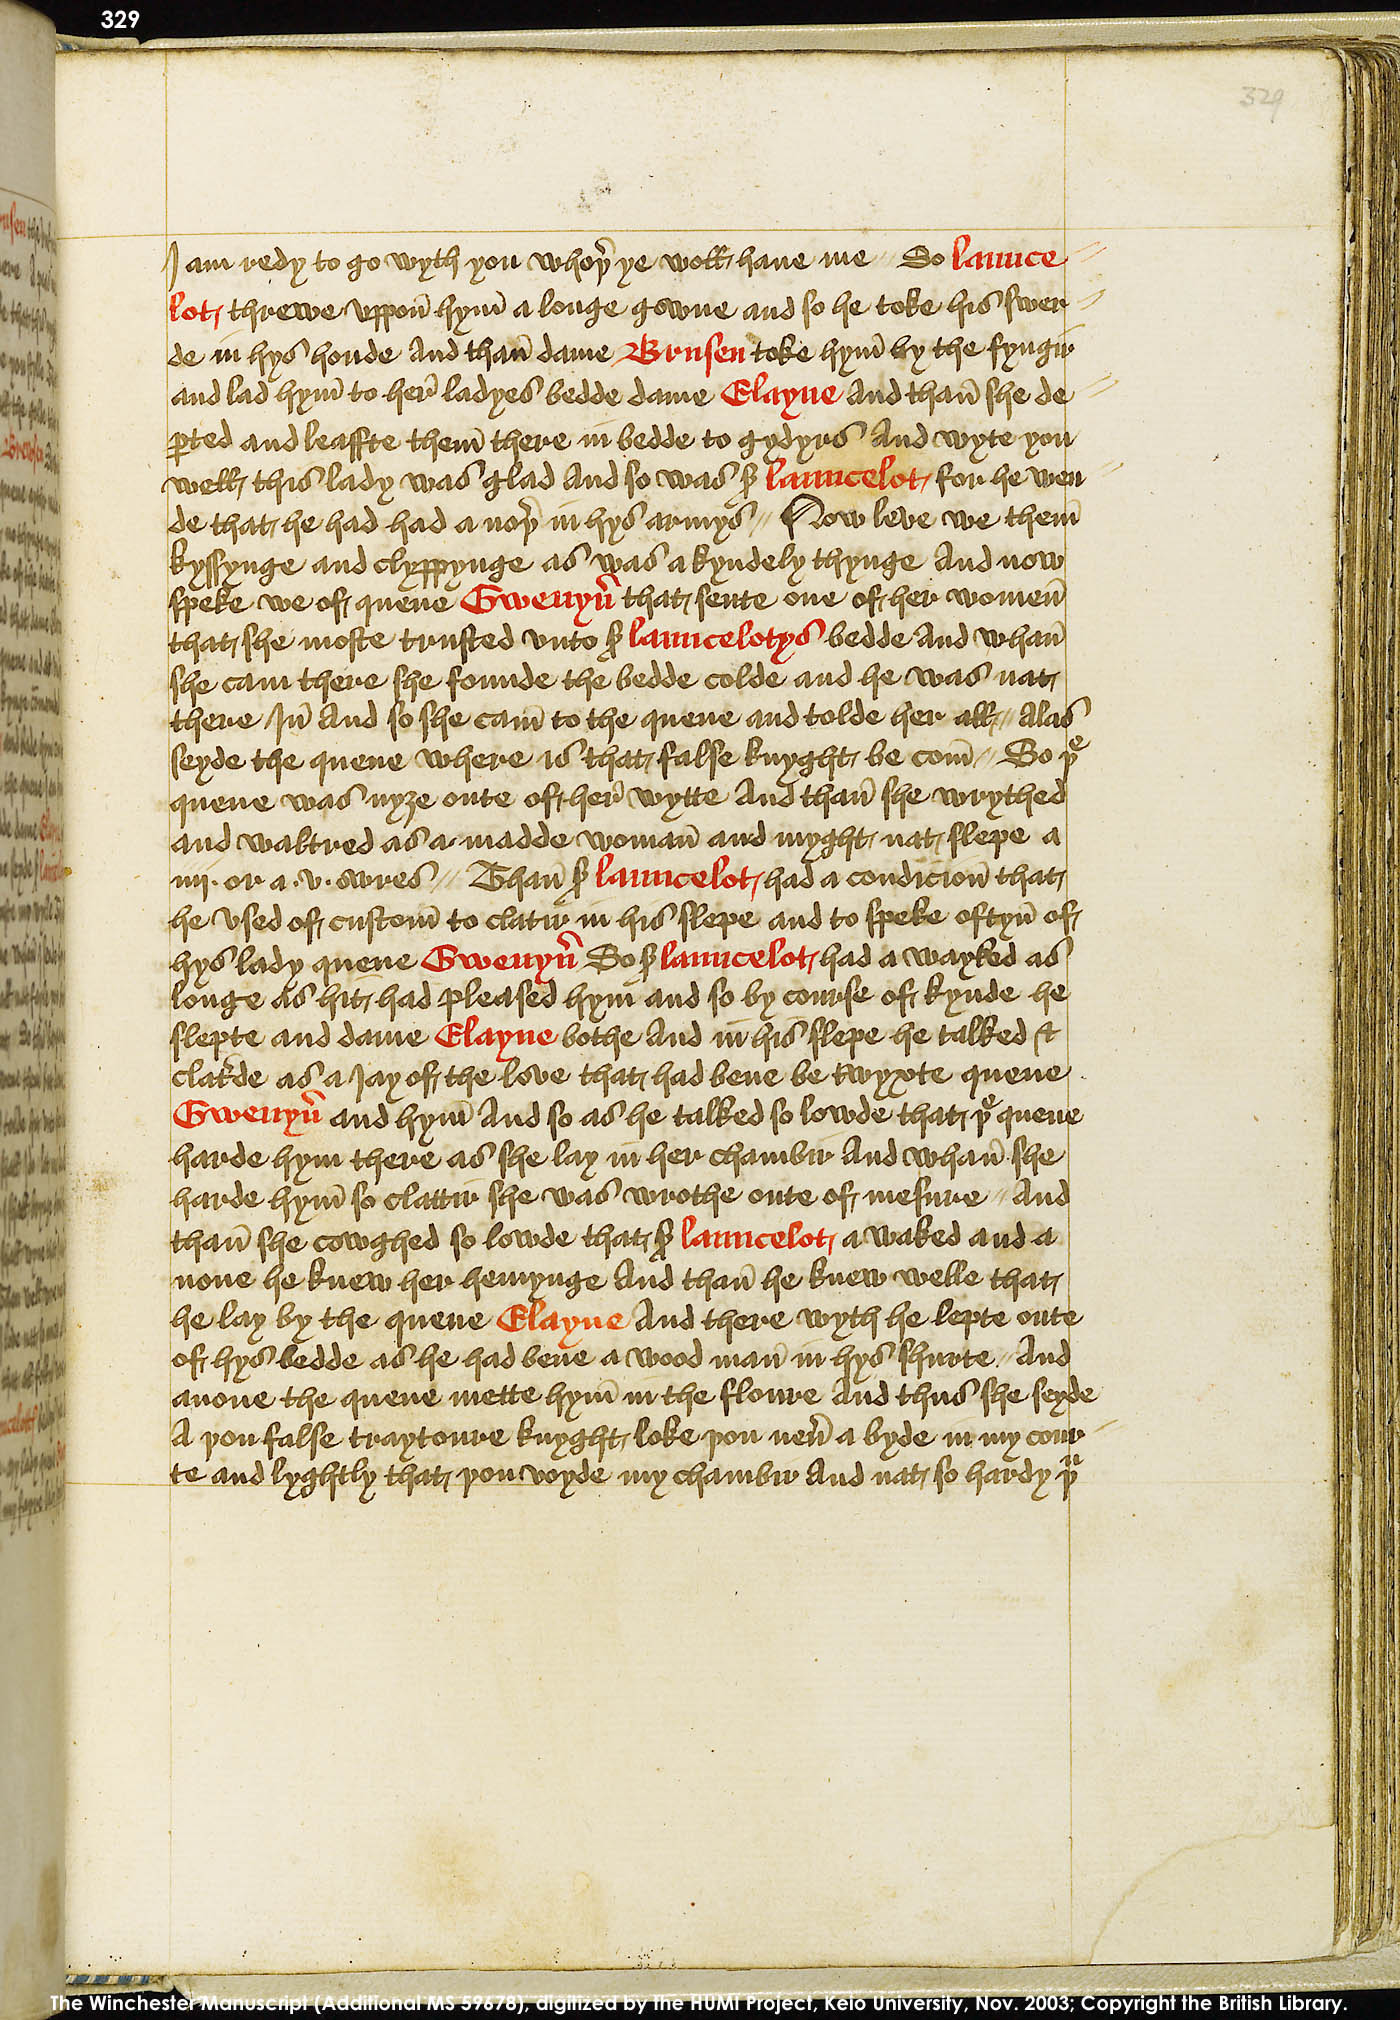 329
329
I am redy to go wyth you whoþer ye woll have me // So launce
lot threwe uppon hym a longe gowne and so he toke his swer
de in hys honde And than dame Brusen toke hym by the fyngir
and lad hym to her ladyes bedde dame Elayne And than she de
parted and leaffte them there in bedde to gydyrs And wyte you
well this lady was glad And so was sir launcelot for he wen
de that he had had a noþer in hys armys // Now leve we them
kyssynge and clyppynge as was a kyndely thynge And now
speke we of quene Gwenyver that sente one of her women
that she moste trusted unto sir launcelotys bedde And whan
she cam there she founde the bedde colde and he was nat
there In And so she cam to the quene and tolde her all // Alas
seyde the quene where is that false knyght be com // So þe
quene was nyze oute of her wytte And than she wrythed
and waltred as a madde woman and myght nat slepe a
iiij. or a .v. owres // Than sir launcelot had a condicion that
he used of custom to clatir in his slepe and to speke oftyn of
hys lady quene Gwenyver So sir launcelot had a wayked as
longe as hit had pleased hym and so by course of kynde he
slepte and dame Elayne bothe And in his slepe he talked &
claterde as a Jay of the love that had bene be twyxte quene
Gwenyver and hym And so as he talked so lowde that þe quene
harde hym there as she lay in her chambir And whan she
harde hym so clattir she was wrothe oute of mesure // And
than she cowghed so lowde that sir launcelot a waked and a
none he knew her hemynge And than he knew welle that
he lay by the quene Elayne And there wyth he lepte oute
of hys bedde as he had bene a wood man in hys shurte // And
anone the quene mette hym in the floure And thus she seyde
A þou false traytoure knyght loke þou never a byde in my cour
te and lyghtly that þou voyde my chambir And nat so hardy þu
The Winchester Manuscript (Additional MS 59678), digitized by the HUMI Project, Keio University, Nov. 2003; Copyright the British Library.